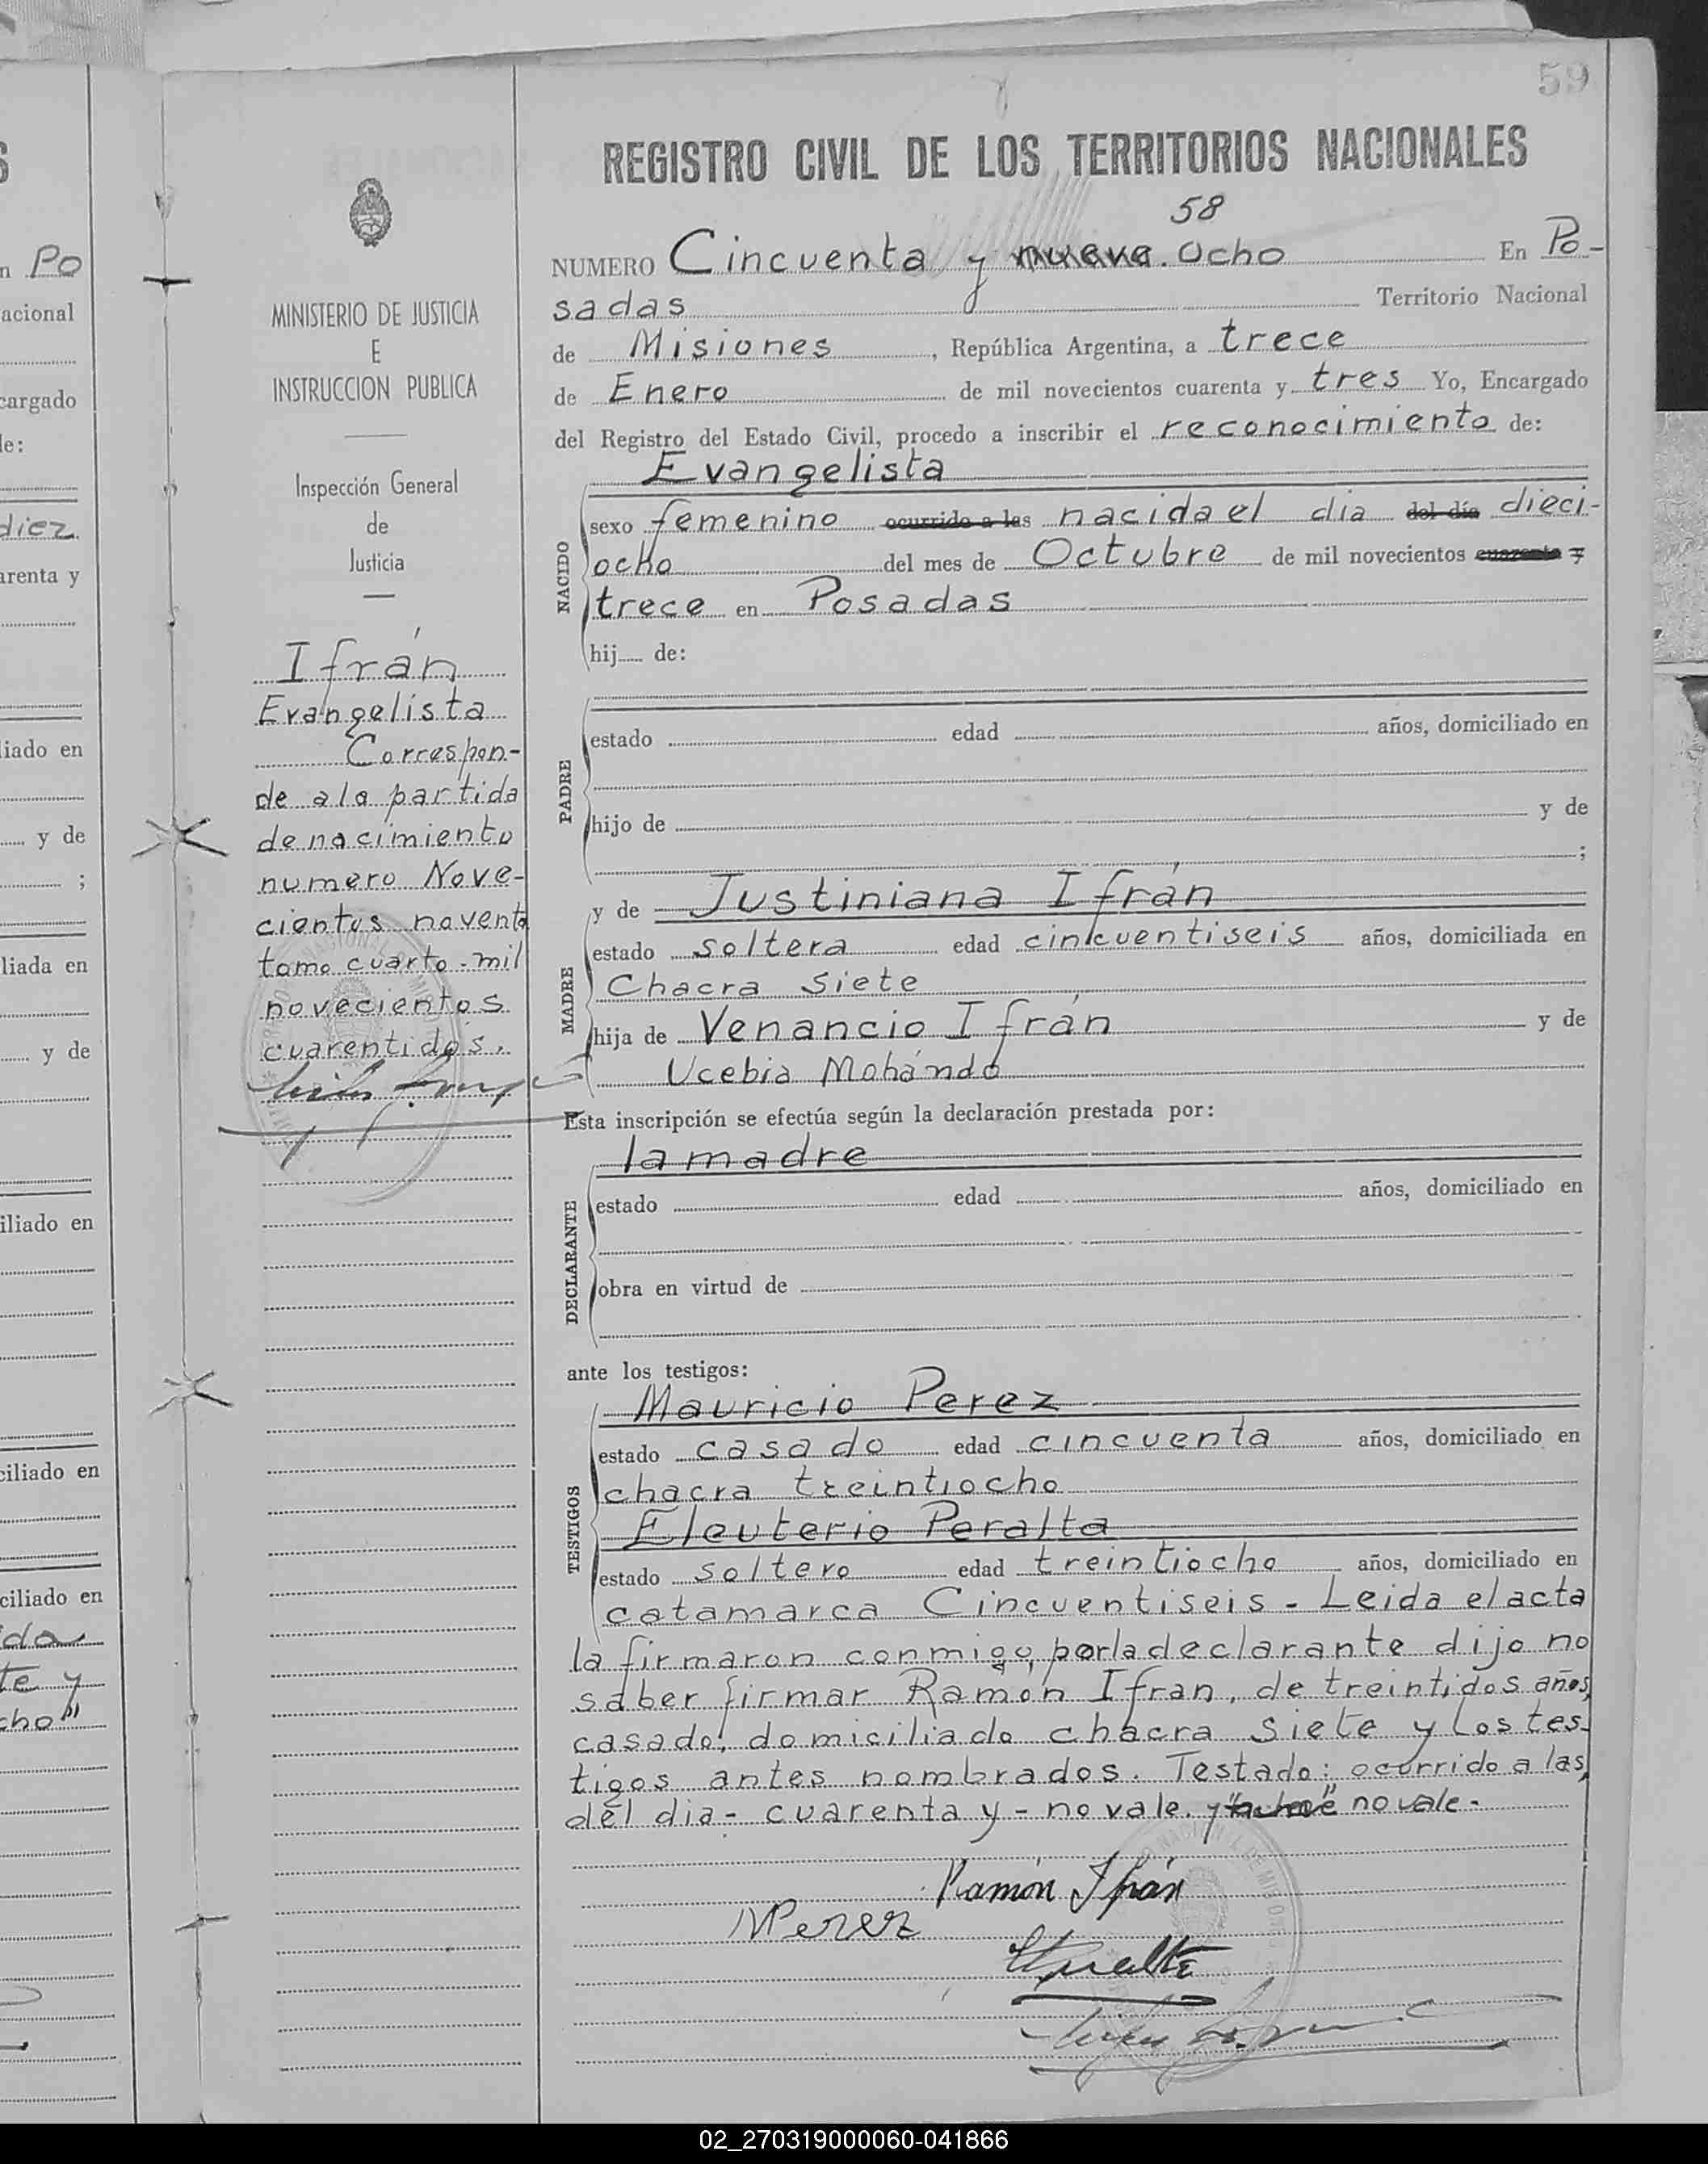 59
REGISTRO CIVIL DE LOS TERRITORIOS NACIONALES
58
NUMERO Cincuenta y nueve. Ocho En Po-
sadas Territorio Nacional
de Misiones, República Argentina, a trece
de Enero de mil novecientos cuarenta y tres Yo, Encargado
del Registro del Estado Civil, procedo a inscribir el reconocimiento de:
Evangelista
NACIDO
sexo femenino ocurrido a las nacida el dia del día dieci-
ocho del mes de Octubre de mil novecientos cuarenta y
trece en Posadas
hij de:
PADRE
estado edad años, domiciliado en
hijo de y de
;
MADRE
y de Justiniana Ifrán
estado soltera edad cinkuentiseis años, domiciliada en
Chacra Siete
hija de Venancio Ifrán y de
Ucebia Mohándo
Esta inscripción se efectúa según la declaración prestada por:
la madre
DECLARANTE
estado edad años, domiciliado en
obra en virtud de
ante los testigos:
TESTIGOS
Mauricio Perez
estado casado edad cincuenta años, domiciliado en
chacra treintiocho
Eleuterio Peralta
estado soltero edad treintiocho años, domiciliado en
catamarca Cincuentiseis - Leida el acta
la firmaron conmigo, por la declarante dijo no
saber firmar Ramón Ifran, de treintidos años,
casado, domiciliado chacra Siete y los tes-
tigos antes nombrados. Testado: ocurrido a las,
del dia - cuarenta y - no vale. y no vale.
Ramón Ifrán
MPerez
EPeralta
MINISTERIO DE JUSTICIA
E
INSTRUCCION PUBLICA
Inspección General
de
Justicia
Ifrán
Evangelista
Correspon-
de a la partida
de nacimiento
numero Nove-
cientos noventa
tomo cuarto - mil
novecientos
cuarentidós.
n Po
acional
cargado
de:
diez
arenta y
liado en
y de
;
liada en
y de
iliado en
ciliado en
ciliado en
da
te y
cho"
02_270319000060-041866